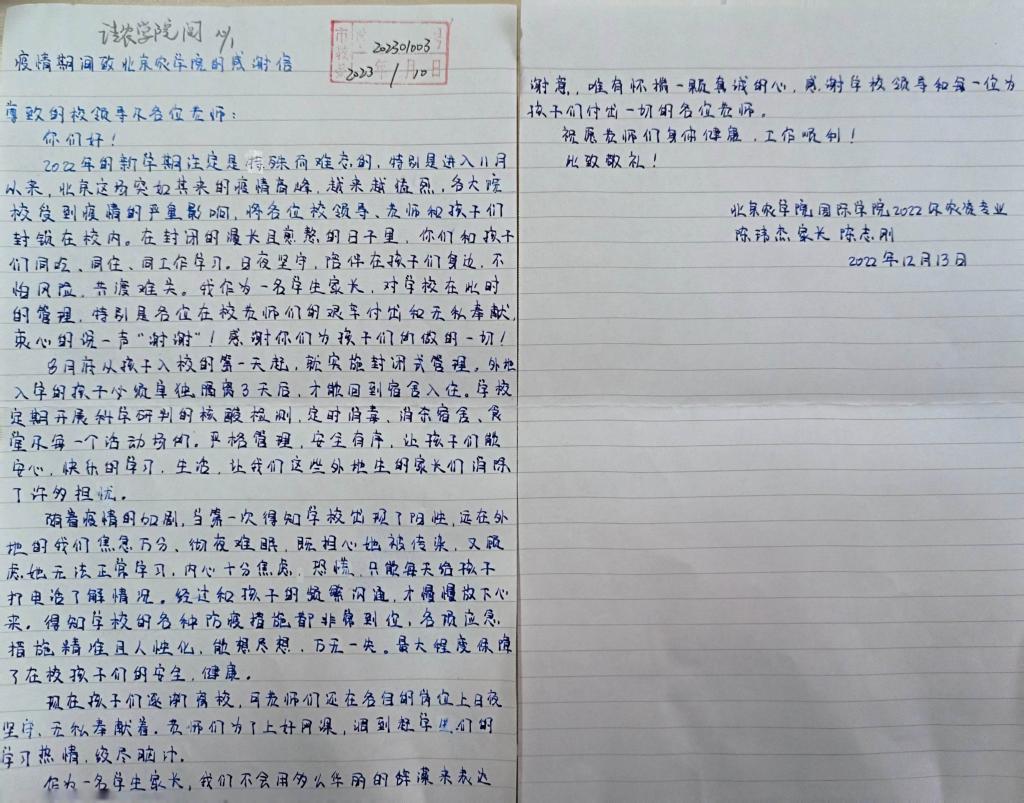 请农学院阅
202301003
2023年1月10日
疫情期间致北京农学院的感谢信
尊敬的校领导及各位老师：
你们好！
2022年的新学期注定是特殊而难忘的，特别是进入11月
以来，北京这场突如其来的疫情高峰，越来越猛烈，各大院
校受到疫情的严重影响，将各位校领导、老师和孩子们
封锁在校内。在封闭的漫长且煎熬的日子里，你们和孩子
们同吃、同住、同工作学习。日夜坚守，陪伴在孩子们身边，不
怕风险，共渡难关。我作为一名学生家长，对学校在此时
的管理，特别是各位在校老师们的艰辛付出和无私奉献，
衷心的说一声“谢谢”！感谢你们为孩子们所做的一切！
8月底从孩子入校的第一天起，就实施封闭式管理。外地
入学的孩子必须单独隔离3天后，才能回到宿舍入住。学校
定期开展科学研判的核酸检测，定时消毒、消杀宿舍、食
堂及每一个活动场所。严格管理，安全有序，让孩子们能
安心，快乐的学习，生活，让我们这些外地生的家长们消除
了许多担忧。
随着疫情的加剧，当第一次得知学校出现了阳性，远在外
地的我们焦急万分、彻夜难眠，既担心她被传染，又顾
虑她无法正常学习，内心十分焦虑，恐慌，只能每天给孩子
打电话了解情况。经过和孩子的频繁沟通，才慢慢放下心
来。得知学校的各种防疫措施都非常到位，各项应急
措施精准且人性化，能想尽想，万无一失。最大程度保障
了在校孩子们的安全，健康。
现在孩子们逐渐离校，可老师们还在各自的岗位上日夜
坚守，无私奉献着。老师们为了上好网课，调到起学生们的
学习热情，绞尽脑汁。
作为一名学生家长，我们不会用多么华丽的辞藻来表达
谢意，唯有怀揣一颗真诚的心，感谢学校领导和每一位为
孩子们付出一切的各位老师。
祝愿老师们身体健康，工作顺利！
此致敬礼！
北京农学院国际学院2022级农资专业
陈玮杰家长 陈志刚
2022年12月13日